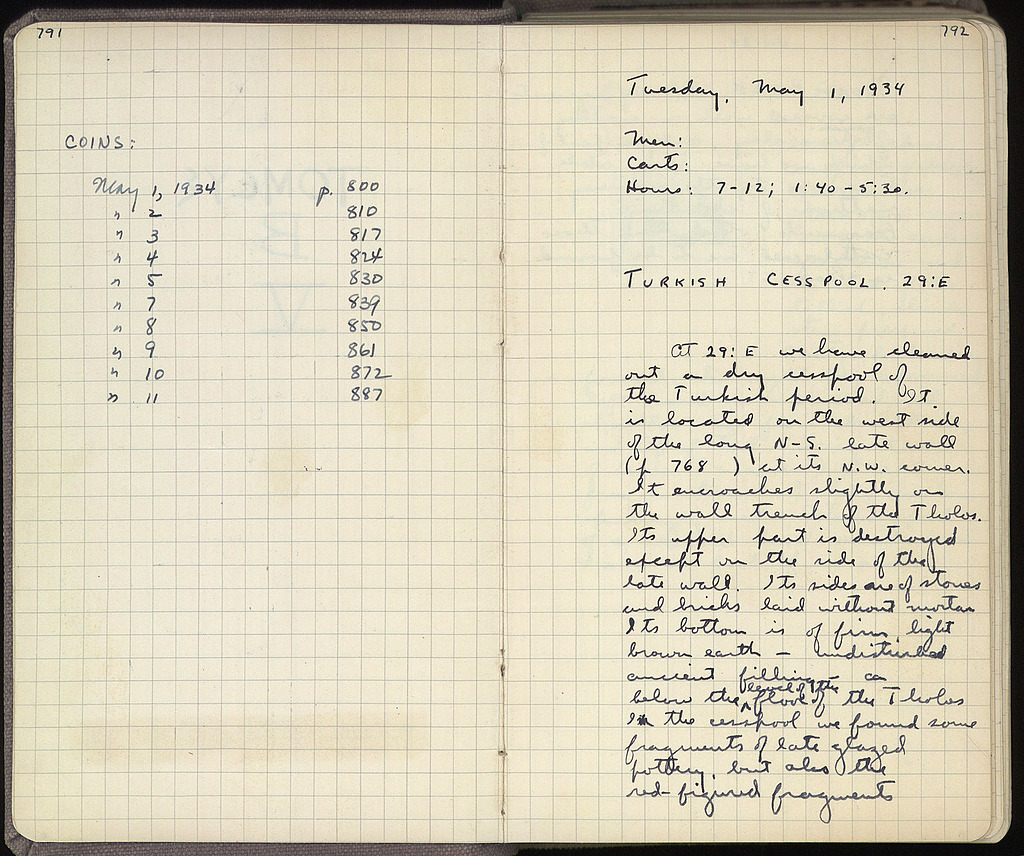 791
COINS:
May 1, 1934 p. 800
" 2 810
" 3 817
" 4 824
" 5 830
" 7 839
" 8 850
" 9 861
" 10 872
" 11 887
792
Tuesday, May 1, 1934
Men:
Carts:
Hours: 7-12; 1:40-5:30.
TURKISH CESSPOOL. 29:E
At 29:E we have cleaned
out a dry cesspool of
the Turkish period. It
is located on the west side
of the long N-S. late wall
(p 768 ) at its N.W. corner.
It encroaches slightly on
the wall trench of the Tholos.
Its upper part is destroyed
except on the side of the
late wall. Its sides are of stones
and bricks laid without mortar
Its bottom is of firm, light
brown earth – undisturbed
ancient filling – ca
level of the
below the floor of the Tholos
In the cesspool we found some
fragments of late glazed
pottery, but also the
red-figured fragments